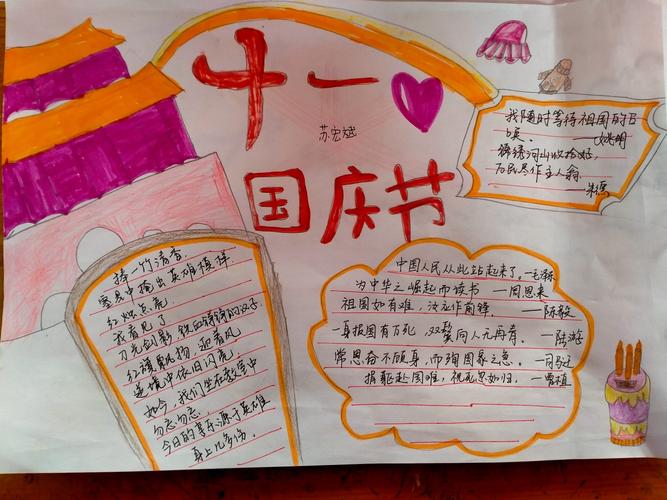 十一
苏宏斌
国庆节
我随时等待祖国的召
唤。——姚明
锦绣河山收拾好,
万民尽作主人翁。
朱德
捧一竹清香.
墨县中掩出英雄模样
红烛点亮.
我看见了
刀光剑影,铁血铮铮的汉子
红旗飘扬,迎着风
逆境中依旧闪亮
如今,我们坐在教室中
勿忘勿忘.
今日的喜乐源于英雄
身上几多伤。
中国人民从此站起来了,—毛泽东
为中华之崛起而读书—周恩来
祖国如有难,汝应作前锋。—陈毅
一身报国有万死,双鬓向人无再青。—陆游
常思奋不顾身,而殉国家之急。—司马迁
捐躯赴国难,视死忽如归,—曹植